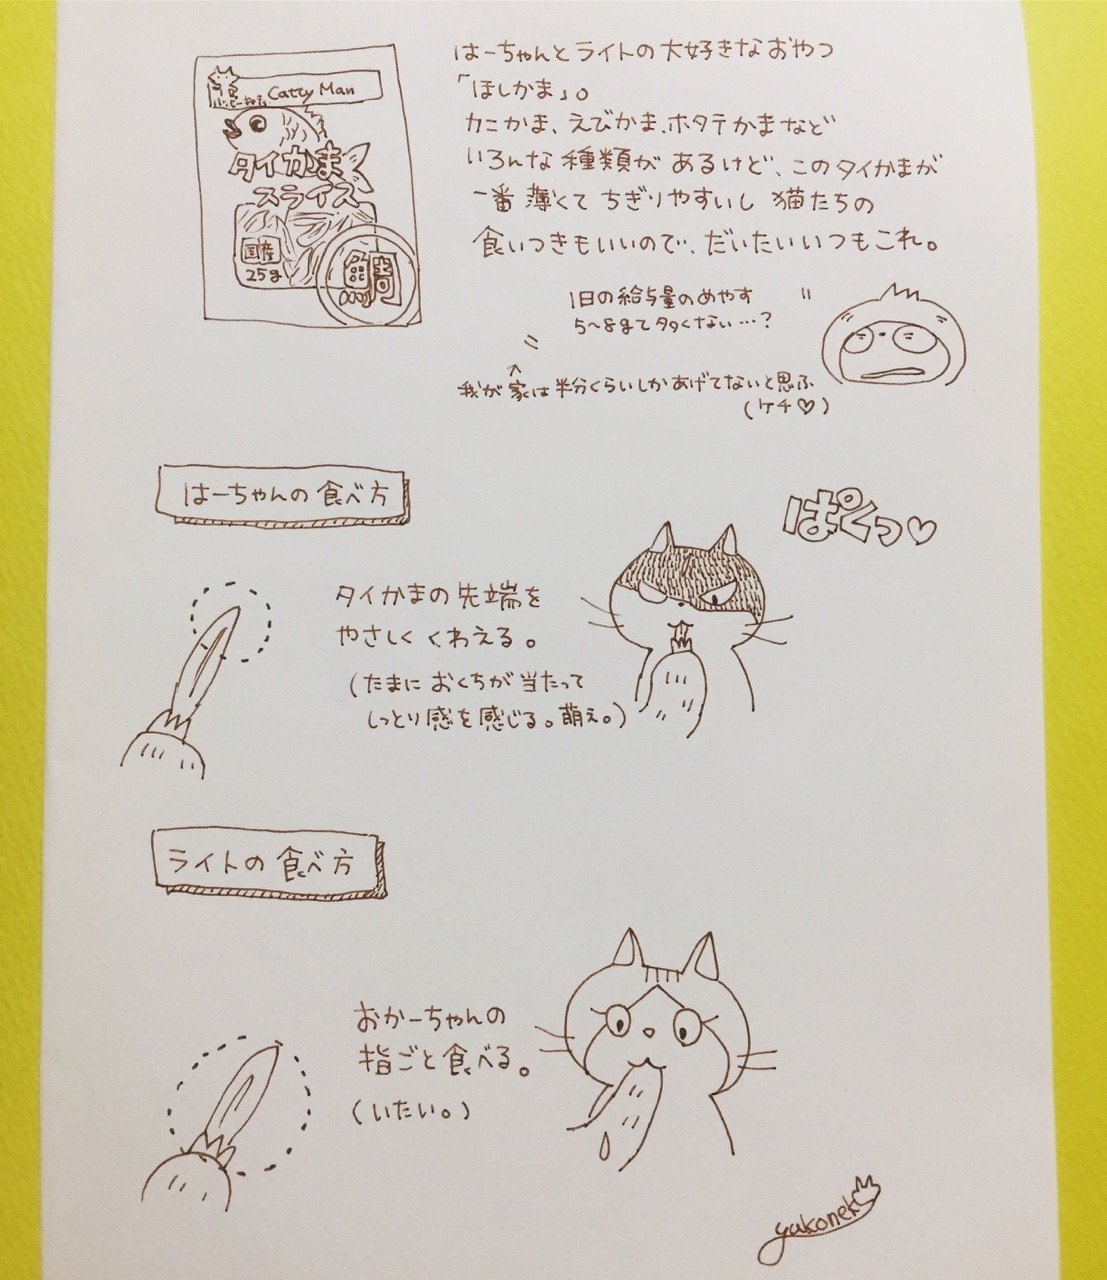 はーちゃんとライトの大好きなおやつ
「ほしかま」。
カニかま、えびかま、ホタテかまなど
いろんな種類があるけど、このタイかまが
一番薄くてちぎりやすいし猫たちの
食いつきもいいので、だいたいいつもこれ。
Catty Man
タイかま
スライス
国産
25g
鯛
1日の給与量のめやす
5〜8gて多くない…?
我が家は半分くらいしかあげてないと思ふ
(ケチ♡)
はーちゃんの食べ方
ぱくっ♡
タイかまの先端を
やさしくくわえる。
(たまにおくちが当たって
しっとり感を感じる。萌え。)
ライトの食べ方
おかーちゃんの
指ごと食べる。
(いたい。)
yakoneko